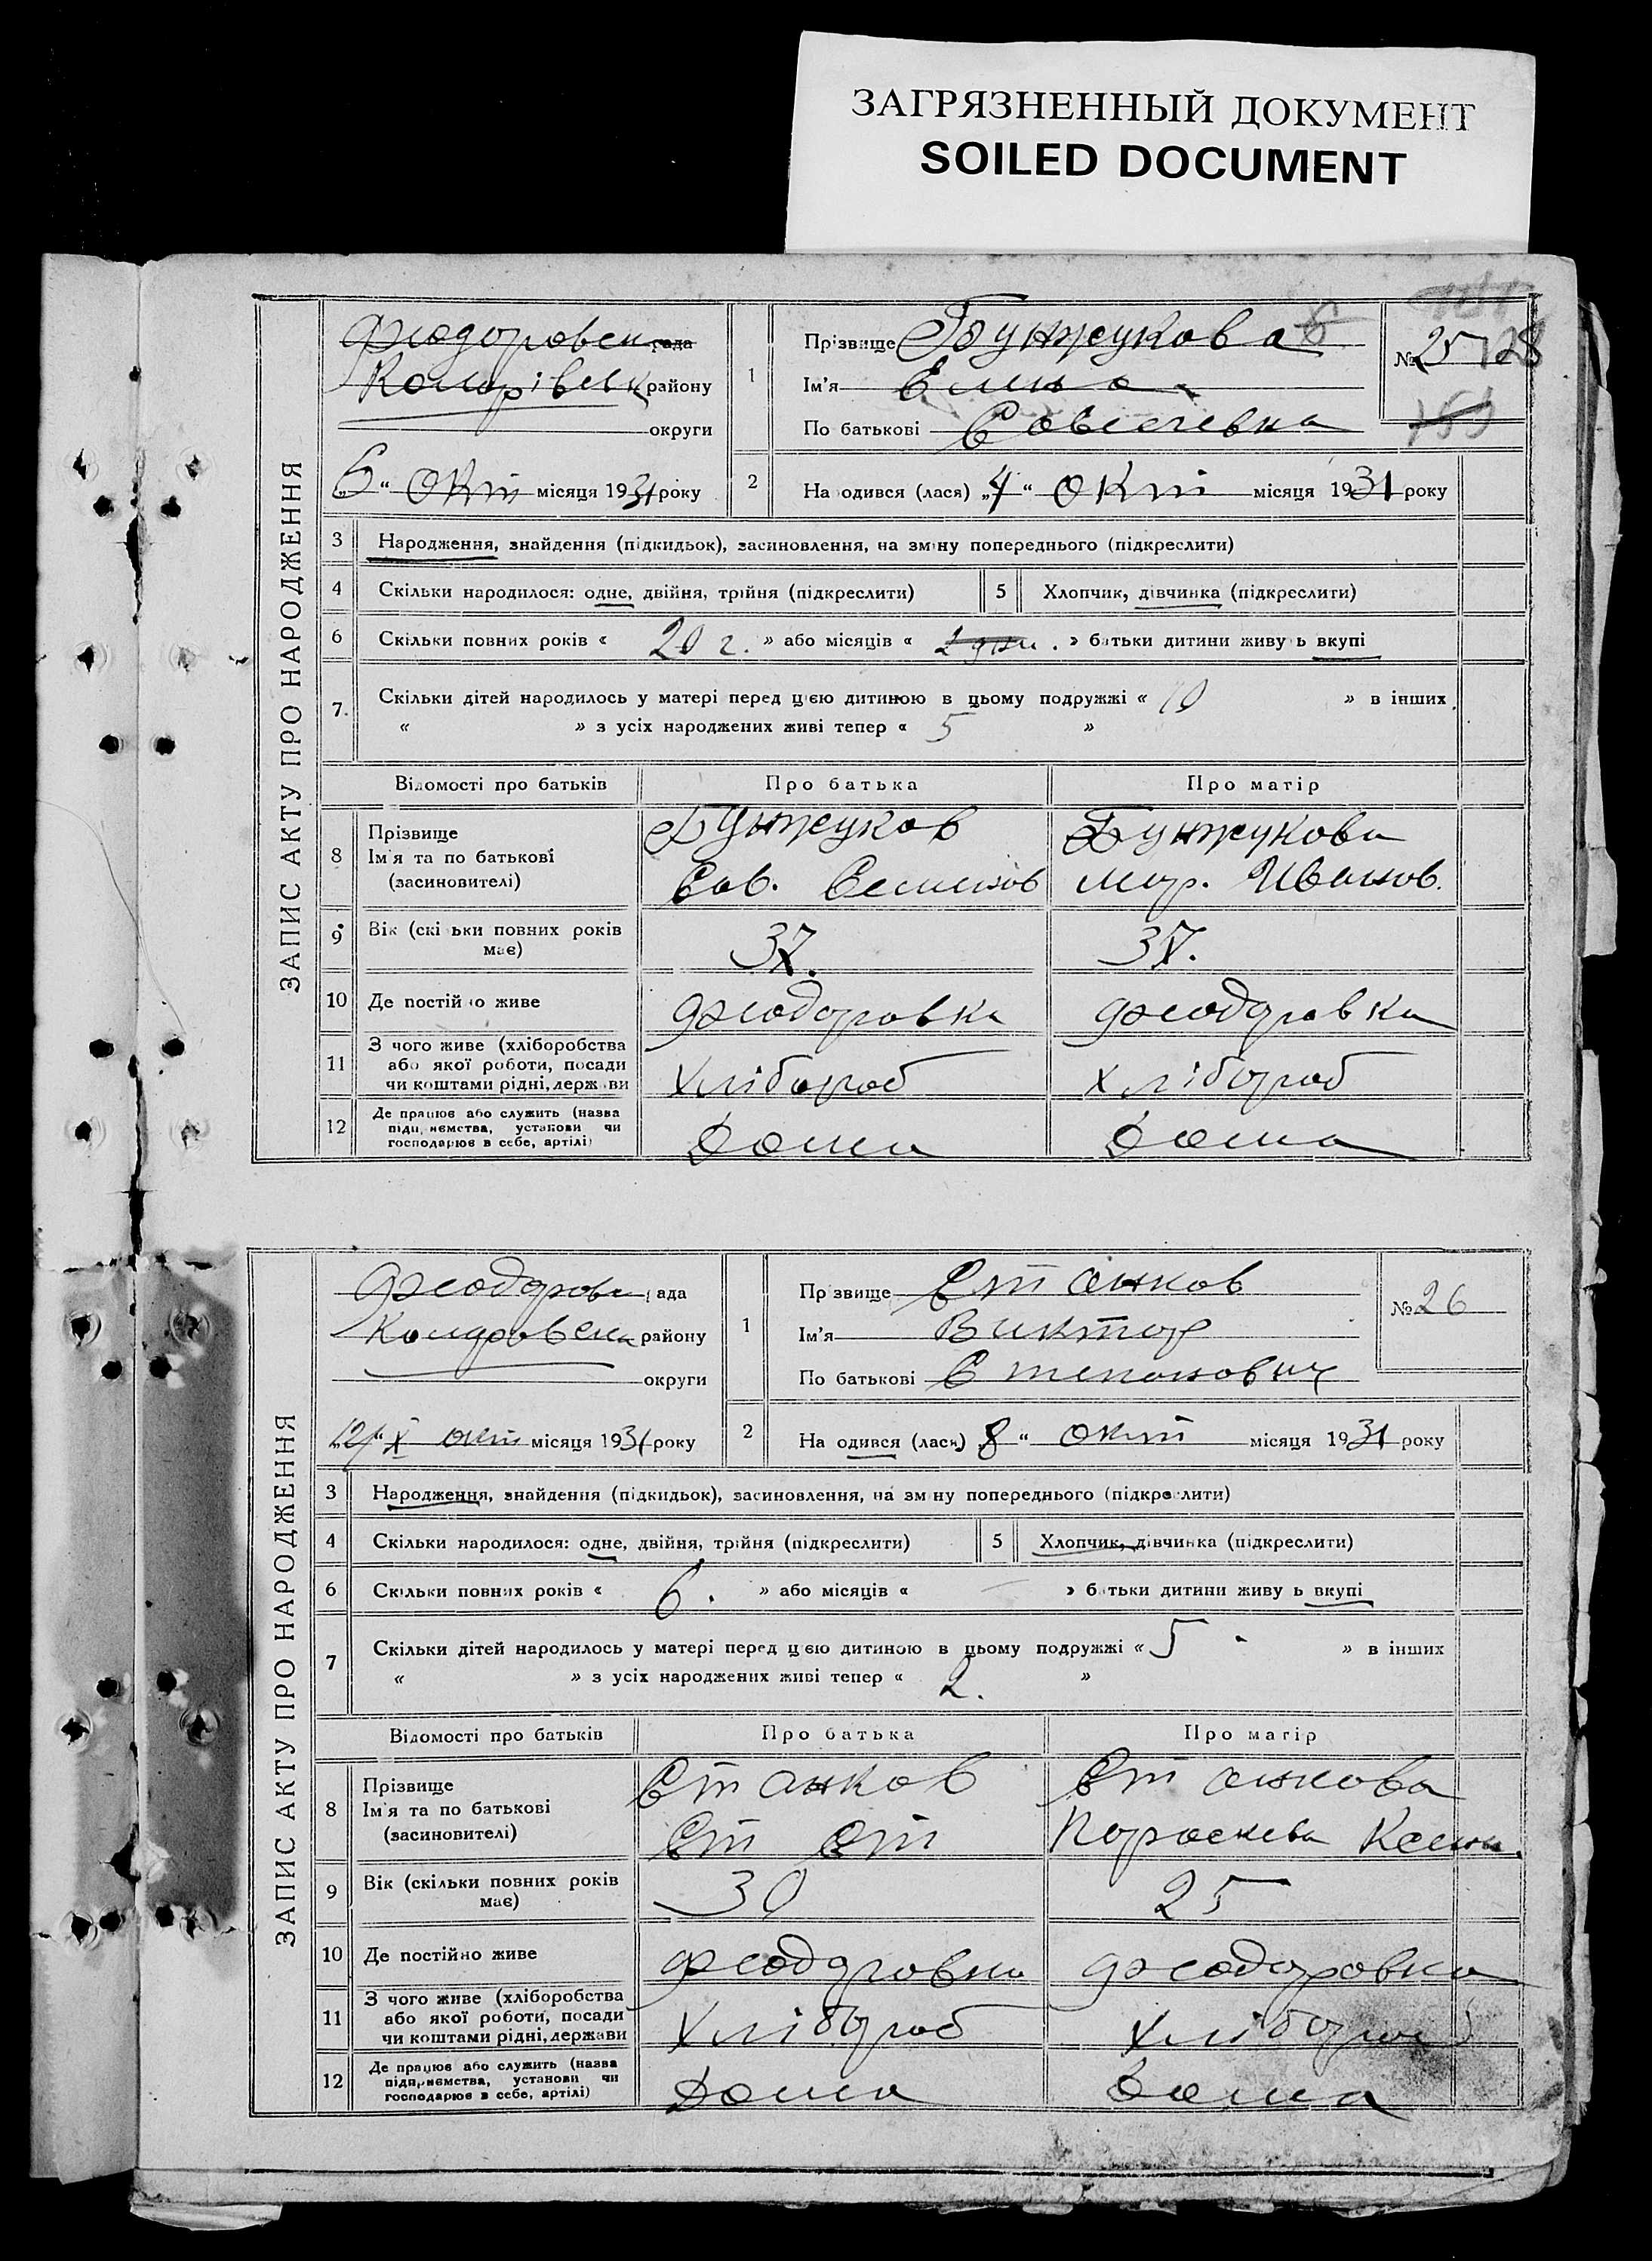 ЗАГРЯЗНЕННЫЙ ДОКУМЕНТ
SOILED DOCUMENT
ЗАПИС АКТУ ПРО НАРОДЖЕННЯ
Феодоровск рада
Коларівськ району
округи
„6“ окт місяця 1931 року
1
Прізвище Бунжукова
Ім'я Елена
По батькові Савелевна
№ 25 128
159
2
На одився (лася) „4“ окт місяця 1931 року
3 Народження, знайдення (підкидьок), засиновлення, на зміну попереднього (підкреслити)
4 Скільки народилося: одне, двійня, трійня (підкреслити)
5 Хлопчик, дівчинка (підкреслити)
6 Скільки повних років « 20 г. » або місяців « » батьки дитини живу ь вкупі
7. Скільки дітей народилось у матері перед цією дитиною в цьому подружжі « 10 » в інших
« » з усіх народжених живі тепер « 5 »
Відомості про батьків Про батька Про матір
8 Прізвище
Ім'я та по батькові
(засиновителі)
Бунжуков
Сав. Семенов
Бунжукова
Мар. Иванов.
9 Вік (скі ьки повних років
має)
37. 37.
10 Де постій о живе Феодоровка Феодоровка
11 З чого живе (хліборобства
або якої роботи, посади
чи коштами рідні, держ ви
Хлібороб Хлібороб
12 Де працює або служить (назва
підп, иємства, установи чи
господарює в себе, артілі)
Дома Дома
ЗАПИС АКТУ ПРО НАРОДЖЕННЯ
Феодоровск ада
Коларовск району
округи
„12“ X окт місяця 1931 року
1
Пр звище Станков
Ім'я Виктор
По батькові Степанович
№ 26
2
На одився (лася) 8“ окт місяця 1931 року
3 Народження, знайдення (підкидьок), засиновлення, на зм ну попереднього (підкре лити)
4 Скільки народилося: одне, двійня, трійня (підкреслити)
5 Хлопчик, дівчинка (підкреслити)
6 Скільки повних років « 6. » або місяців « — » б тьки дитини живу ь вкупі
7 Скільки дітей народилось у матері перед цією дитиною в цьому подружжі « 5 » в інших
« » з усіх народжених живі тепер « 2. »
Відомості про батьків Про батька Про матір
8 Прізвище
Ім'я та по батькові
(засиновителі)
Станков
Ст Ст
Станкова
Параскева Ксен.
9 Вік (скільки повних років
має)
30 25
10 Де постійно живе Феодоровка Феодоровка
11 З чого живе (хліборобства
або якої роботи, посади
чи коштами рідні, держави
Хлібороб Хлібороб
12 Де працює або служить (назва
підприємства, установи чи
господарює в себе, артілі)
Дома Дома